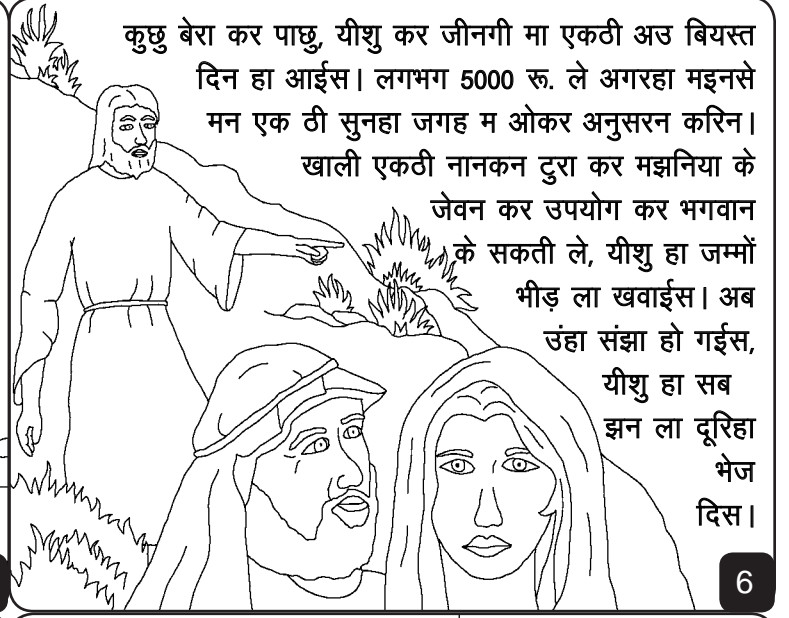 कुछु बेरा कर पाछु, यीशु कर जीनगी मा एकठी अउ बियस्त
दिन हा आईस। लगभग 5000 रू. ले अगरहा मइनसे
मन एक ठी सुनहा जगह म ओकर अनुसरन करिन।
खाली एकठी नानकन टुरा कर मझनिया के
जेवन कर उपयोग कर भगवान
के सकती ले, यीशु हा जम्मों
भीड़ ला खवाईस। अब
उंहा संझा हो गईस,
यीशु हा सब
झन ला दूरिहा
भेज
दिस।
6